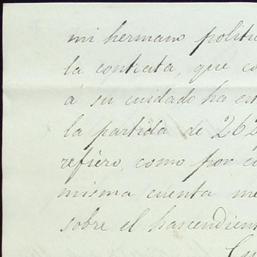 mi hermano politic
la contrata, que co
á su cuidado ha es
la partida de 262
refiero, como por c
misma cuenta me
sobre el hascendien